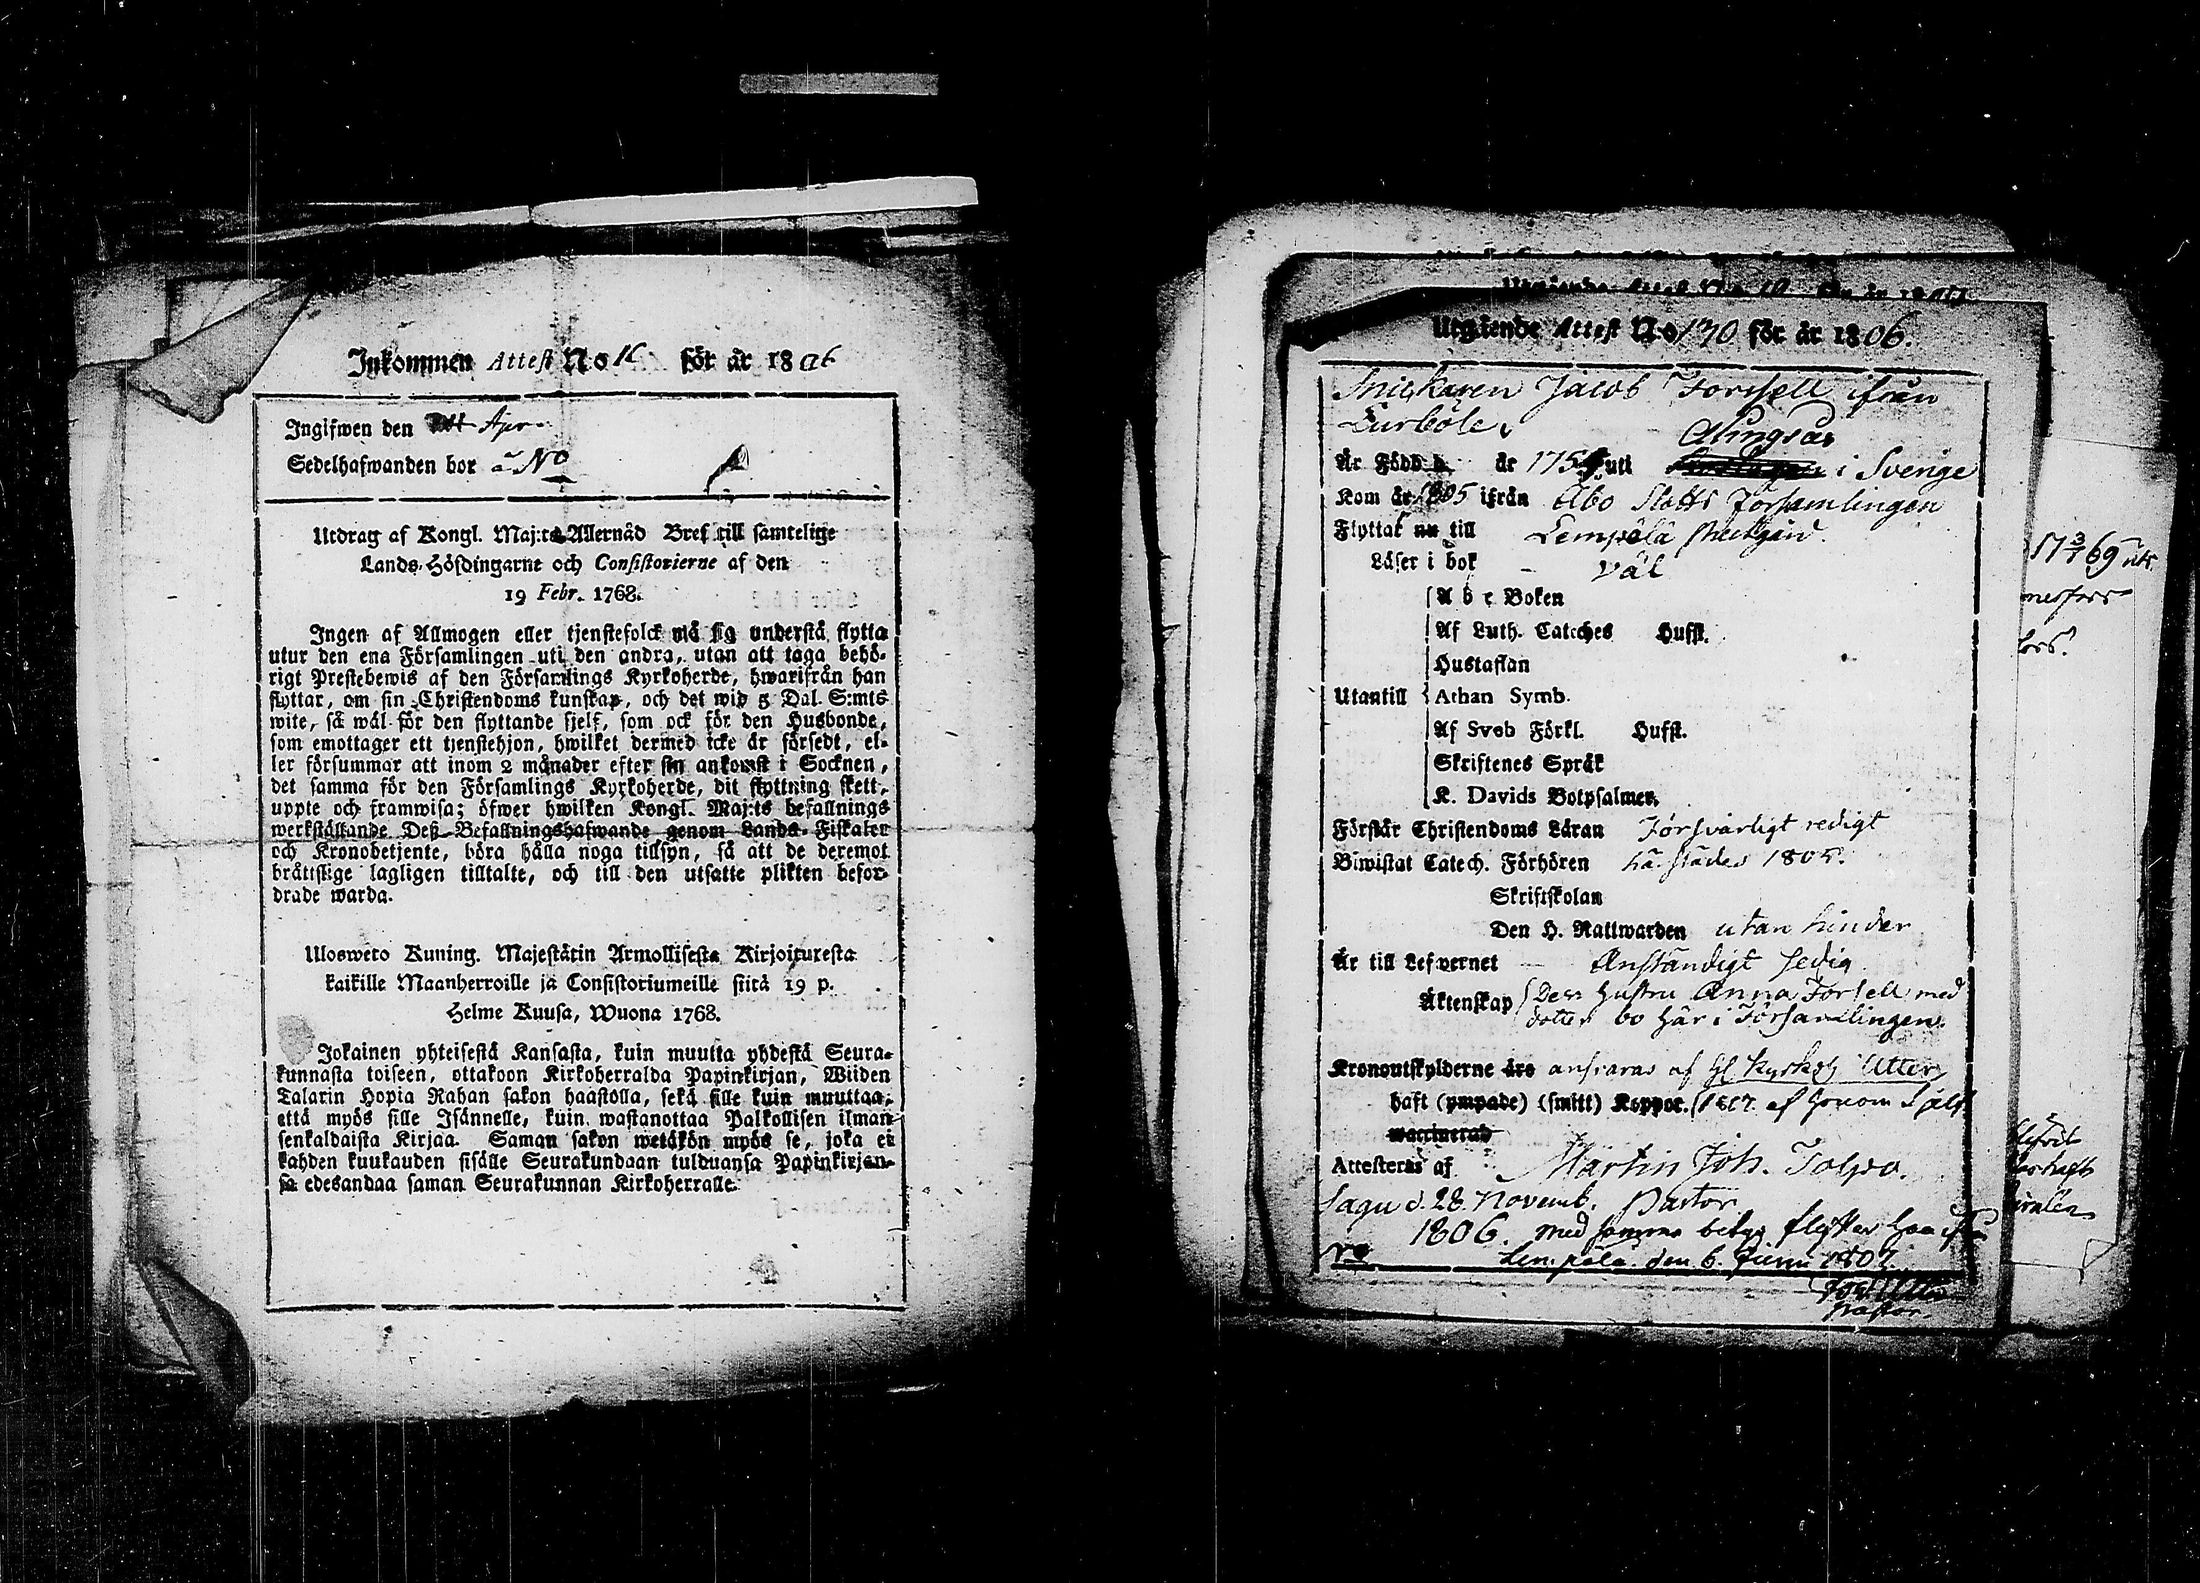 Inkommen Attest No 16 för år 1806
Ingifwen den Apr.
Sedelhafwanden bor å No
Utdrag af Kongl. Maj:ts Allernåd Bref till samtelige
Lands-Höfdingarne och Consistorierne af den
19 Febr. 1768.
Ingen af Allmogen eller tjenstefolck må sig understå flytta
utur den ena Församlingen uti den andra, utan att taga behö-
rigt Prestebewis af den Församlings Kyrkoherde, hwarifrån han
flyttar, om sin Christendoms kunskap, och det wid 5 Dal. S:mts
wite, så wäl för den flyttande sjelf, som ock för den Husbonde,
som emottager ett tjenstehjon, hwilket dermed icke är försedt, el-
ler försummar att inom 2 månader efter sin ankomst i Socknen,
det samma för den Församlings Kyrkoherde, dit flyttning skett,
uppte och framwisa; öfwer hwilken Kongl. Maj:ts befallnings
werkställande Deß Befallningshafwande genom Lands-Fiskaler
och Kronobetjente, böra hålla noga tillsyn, så att de deremot
bråttslige lagligen tilltalte, och till den utsatte plikten befor-
drade warda.
Ulosweto Kuning. Majestätin Armollisesta Kirjoituxesta
kaikille Maanherroille ja Consistoriumeille siitä 19 p.
Helme Kuusa, Wuona 1768.
Jokainen yhteisestä Kansasta, kuin muutta yhdestä Seura-
kunnasta toiseen, ottakoon Kirkoherralda Papinkirjan, Wiiden
Talarin Hopia Rahan sakon haastolla, sekä sille kuin muuttaa,
että myös sille Isännelle, kuin wastanottaa Palkollisen ilman
senkaldaista Kirjaa. Saman sakon wetäkön myös se, joka ei
kahden kuukauden sisälle Seurakundaan tulduansa Papinkirjan-
sa edesandaa saman Seurakunnan Kirkoherralle.
Utgående Attest No 170 för år 1806.
Snickaren Jacob Forssell ifrån
Lurböle.
Alingsås
Är Född d. år 175 uti i Sverige
Kom år 1805 ifrån Åbo Slotts Församlingen
Flyttat nu till Lempälä
Läser i bok väl
A b c Boken
Af Luth. Cateches Hufst.
Hustaflan
Utantill Athan Symb.
Af Sveb Förkl. Hufst.
Skriftenes Språk
K. Davids Botpsalmer.
Förstår Christendoms Läran Försvarligt redigt
Biwistat Catech. Förhören härstädes 1805.
Skriftskolan
Den H. Nattwarden utan hinder
Är till Lefvernet Anständigt sedig
Äktenskap Dess hustru Anna Forsell med
dotter bo här i Församlingen.
Kronoutskylderne äro ansvaras af Utter
haft (ympade) (smitt) Koppor. 1807. af honom Sjelf
waccinerad
Attesteras af Martin Joh. Tolpo.
Sagu d. 28 Novemb. Pastor
1806. Med samma betyg flyttar han ifrån
No Lempälä den 6. Junii 1807.
Pastor.